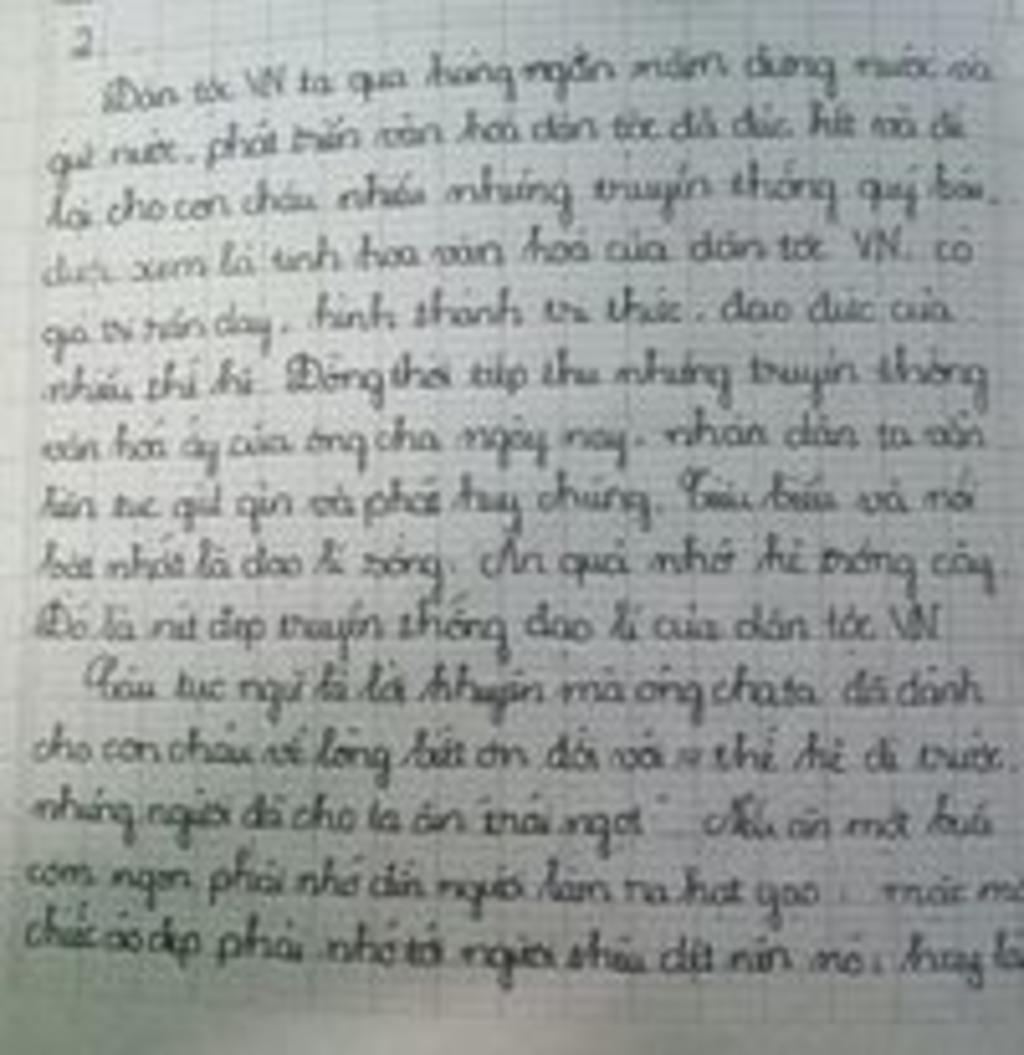 2
Dân tộc VN ta qua hàng ngàn năm dựng nước và
giữ nước, phát triển văn hoá dân tộc đã đúc kết và để
lại cho con cháu nhiều những truyền thống quý báu.
được xem là tinh hoa văn hoá của dân tộc VN. có
giá trị răn dạy, hình thành tri thức, đạo đức của
nhiều thế hệ. Đồng thời tiếp thu những truyền thống
văn hoá ấy của ông cha ngày nay, nhân dân ta vẫn
liên tục giữ gìn và phát huy chúng. Tiêu biểu và nổi
bật nhất là đạo lí sống. Ăn quả nhớ kẻ trồng cây.
Đó là nét đẹp truyền thống đạo lí của dân tộc VN
Câu tục ngữ là lời khuyên mà ông cha ta đã dành
cho con cháu về lòng biết ơn đối với thế hệ đi trước.
những người đã cho ta ăn trái ngọt Nếu ăn một buổi
cơm ngon phải nhớ đến người làm ra hạt gạo, mặc
chiếc áo đẹp phải nhớ tới người thêu dệt nên nó, hay